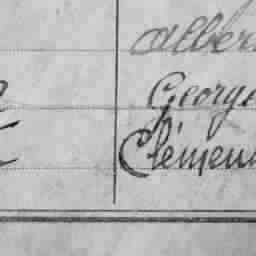 Alber
George
Clémen